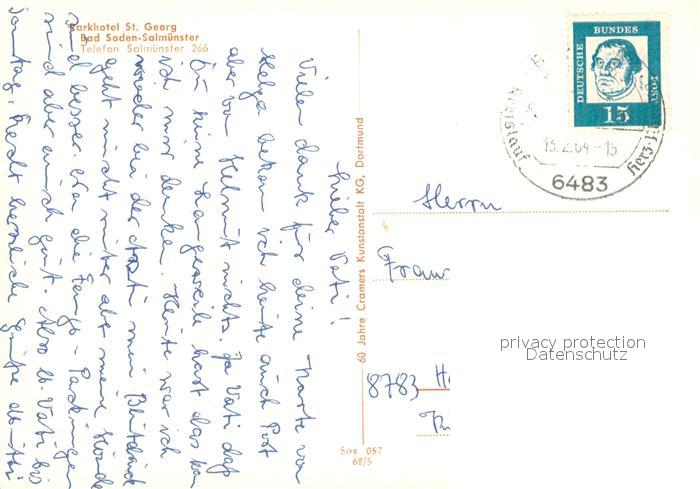 Parkhotel St. Georg
Bad Soden-Salmünster
Telefon Salmünster 266
Lieber Vati!
Vielen Dank für deine Karte von
Helga bekam ich heute auch Post
aber von Helmut nichts. Ja Vati daß
Du keine Langeweile hast das kann
ich mir denken. Heute war ich
wieder bei der Ärztin mein Blutdruck
geht nicht runter aber meine Hände
sind besser. Ja die Fango-Packungen
sind aber auch gut. Also lb. Vati bis
Sonntag. Recht herzliche Grüße
60 Jahre Cramers Kunstanstalt KG, Dortmund
Sos 057
62/5
DEUTSCHE
BUNDES
POST
15
Kreislauf
Herz
13.2.64-15
6483
Herrn
Franz
8783
privacy protection
Datenschutz